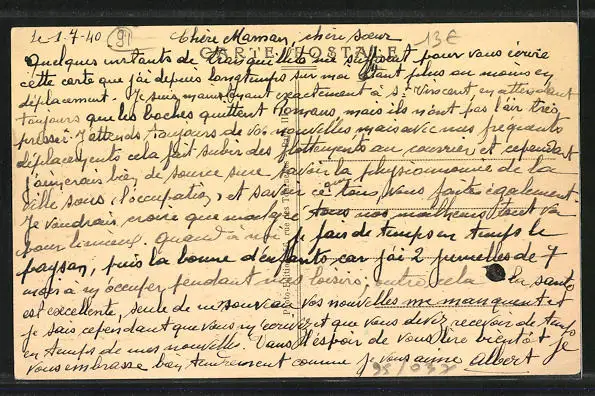 Le 1.7.40 (91) Chère Maman, chère sœur 13€
CARTE POSTALE
Quelques instants de tranquilité me suffisent pour vous écrire
cette carte que j'ai depuis longtemps sur moi étant plus ou moins en
déplacement. Je suis maintenant exactement à St Vincent en attendant
toujours que les boches quittent Romans mais ils n'ont pas l'air très
pressé. J'attends toujours de vos nouvelles mais avec mes fréquents
déplacements cela fait subir des flottements au courrier et cependant
j'aimerais bien de source sure savoir la physionomie de la
ville sous l'occupation, et savoir ce que vous faites également.
Je voudrais croire que malgré tous nos malheurs tout va
pour le mieux. Quand à moi je fais de temps en temps le
paysan, puis la bonne d'enfants car j'ai 2 jumelles de 7
mois à m'occuper pendant mes loisirs, outre cela la santé
est excellente, seule de nouveau vos nouvelles me manquent et
je sais cependant que vous m'écrivez et que vous devez recevoir de temps
en temps de mes nouvelles. Dans l'espoir de vous lire bientôt je
vous embrasse bien tendrement comme je vous aime Albert
95/032